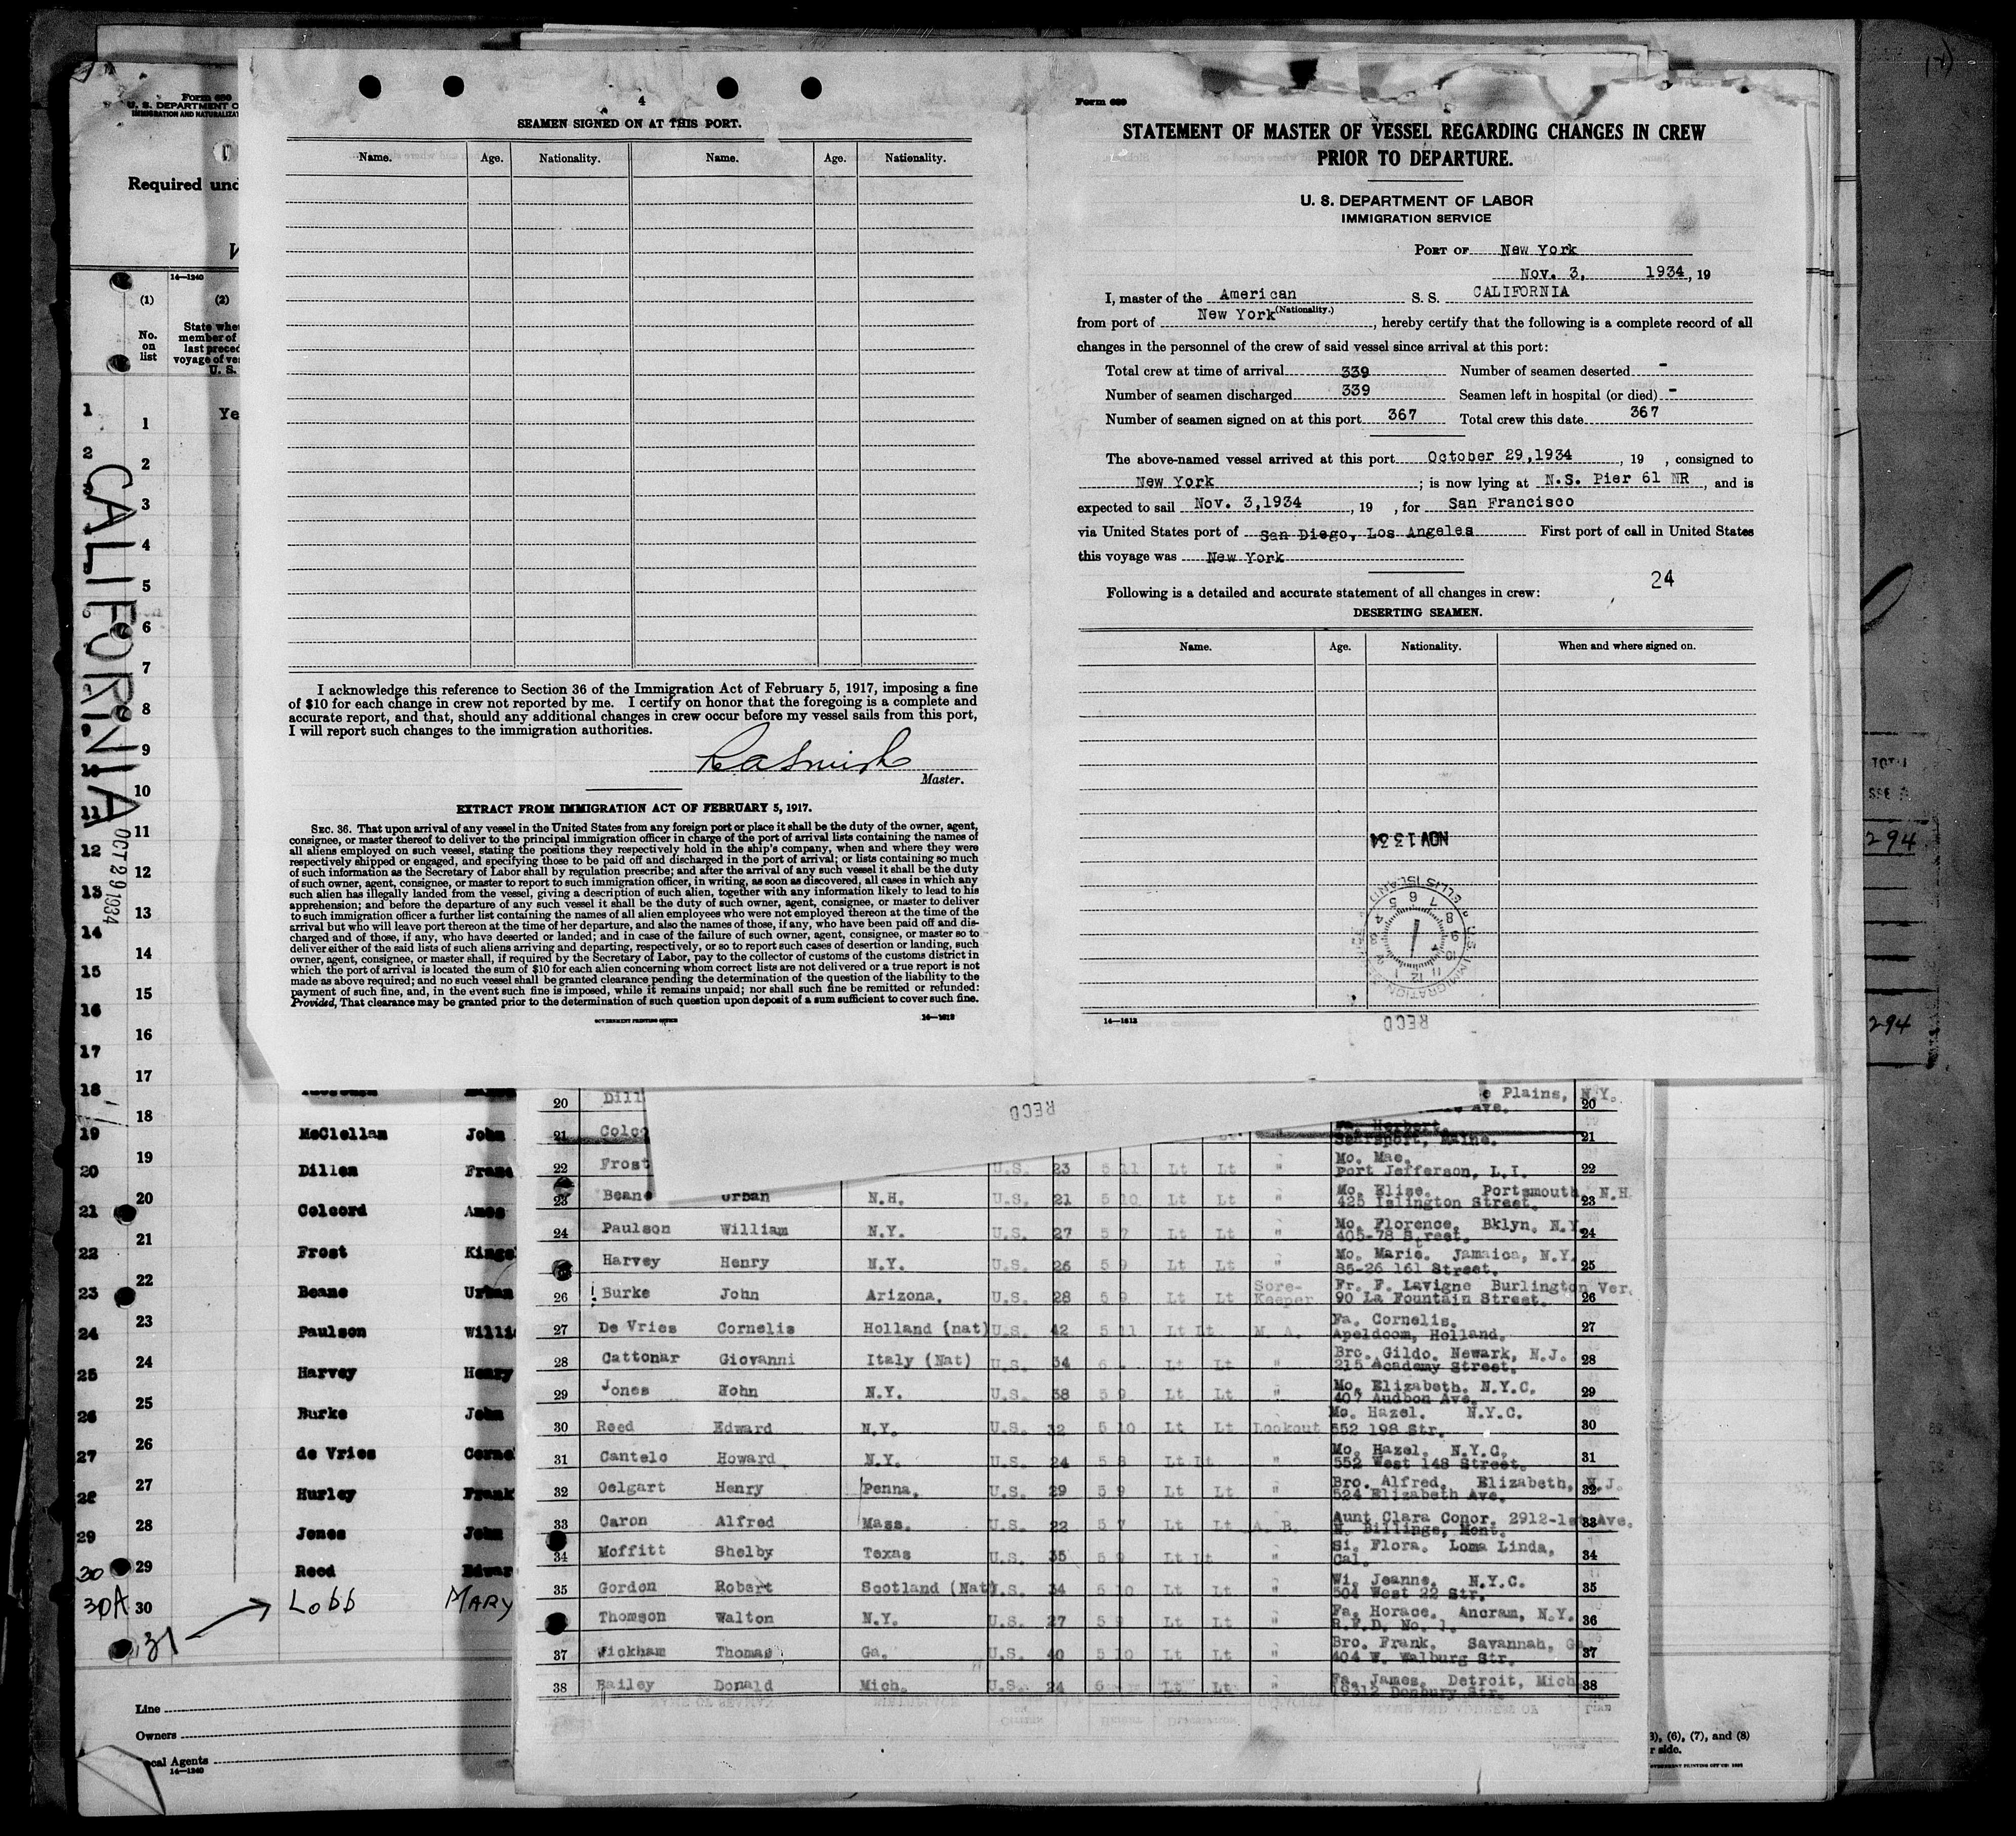 4
SEAMEN SIGNED ON AT THIS PORT.
Name. Age. Nationality. Name. Age. Nationality.
I acknowledge this reference to Section 36 of the Immigration Act of February 5, 1917, imposing a fine
of $10 for each change in crew not reported by me. I certify on honor that the foregoing is a complete and
accurate report, and that, should any additional changes in crew occur before my vessel sails from this port,
I will report such changes to the immigration authorities.
Master.
EXTRACT FROM IMMIGRATION ACT OF FEBRUARY 5, 1917.
SEC. 36. That upon arrival of any vessel in the United States from any foreign port or place it shall be the duty of the owner, agent,
consignee, or master thereof to deliver to the principal immigration officer in charge of the port of arrival lists containing the names of
all aliens employed on such vessel, stating the positions they respectively hold in the ship's company, when and where they were
respectively shipped or engaged, and specifying those to be paid off and discharged in the port of arrival; or lists containing so much
of such information as the Secretary of Labor shall by regulation prescribe; and after the arrival of any such vessel it shall be the duty
of such owner, agent, consignee, or master to report to such immigration officer, in writing, as soon as discovered, all cases in which any
such alien has illegally landed from the vessel, giving a description of such alien, together with any information likely to lead to his
apprehension; and before the departure of any such vessel it shall be the duty of such owner, agent, consignee, or master to deliver
to such immigration officer a further list containing the names of all alien employees who were not employed thereon at the time of the
arrival but who will leave port thereon at the time of her departure, and also the names of those, if any, who have been paid off and dis-
charged and of those, if any, who have deserted or landed; and in case of the failure of such owner, agent, consignee, or master so to
deliver either of the said lists of such aliens arriving and departing, respectively, or so to report such cases of desertion or landing, such
owner, agent, consignee, or master shall, if required by the Secretary of Labor, pay to the collector of customs of the customs district in
which the port of arrival is located the sum of $10 for each alien concerning whom correct lists are not delivered or a true report is not
made as above required; and no such vessel shall be granted clearance pending the determination of the question of the liability to the
payment of such fine, and, in the event such fine is imposed, while it remains unpaid; nor shall such fine be remitted or refunded:
Provided, That clearance may be granted prior to the determination of such question upon deposit of a sum sufficient to cover such fine.
GOVERNMENT PRINTING OFFICE 14—1612
Form 689
STATEMENT OF MASTER OF VESSEL REGARDING CHANGES IN CREW
PRIOR TO DEPARTURE.
U. S. DEPARTMENT OF LABOR
IMMIGRATION SERVICE
PORT OF New York
Nov. 3, 1934, 19
I, master of the American S. S. CALIFORNIA
(Nationality.)
from port of New York, hereby certify that the following is a complete record of all
changes in the personnel of the crew of said vessel since arrival at this port:
Total crew at time of arrival 339 Number of seamen deserted -
Number of seamen discharged 339 Seamen left in hospital (or died) -
Number of seamen signed on at this port 367 Total crew this date 367
The above-named vessel arrived at this port October 29,1934, 19 , consigned to
New York; is now lying at N.S. Pier 61 NR, and is
expected to sail Nov. 3,1934, 19 , for San Francisco
via United States port of San Diego, Los Angeles First port of call in United States
this voyage was New York
24
Following is a detailed and accurate statement of all changes in crew:
DESERTING SEAMEN.
Name. Age. Nationality. When and where signed on.
NOV 13 34
U.S. IMMIGRATION
ELLIS ISLAND
RECD
14—1612
Form 680
U. S. DEPARTMENT O
IMMIGRATION AND NATURALIZAT
Required und
14—1240
(1) (2)
No. on list
State whe
member of
last preced
voyage of ves
U. S.
Ye
CALIFORNIA
OCT 29 1934
1 1
2 2
3
4
5
6
7
8
9
10 10
11 11
12 12
13 13
14 14
15 15
16 16
17 17
18 18
19 19 McClellan John
20 20 Dillen Franc
21 21 Colcord Ames
22 22 Frost Kings
23 23 Beane Urban
24 24 Paulson Willi
25 25 Harvey Henry
26 26 Burke John
27 27 de Vries Corne
28 28 Hurley Frank
29 29 Jones John
30 Reed Edwar
30A 30 Lobb MARY
31
Line
Owners
ocal Agents
14—1240
RECD
20 Dill Plains, N.Y. 20
Ave.
21 Colco Fa. Herbert. 21
Searsport, Maine.
22 Frost U.S. 23 5 11 Lt Lt " Mo. Mae. 22
Port Jefferson, L.I.
23 Beane Urban N.H. U.S. 21 5 10 Lt Lt " Mo. Elise. Portsmouth, N.H 23
425 Islington Street.
24 Paulson William N.Y. U.S. 27 5 7 Lt Lt " Mo. Florence. Bklyn. N.Y. 24
405-78 Street.
Harvey Henry N.Y. U.S. 26 5 9 Lt Lt " Mo. Marie. Jamaica, N.Y. 25
85-26 161 Street.
26 Burke John Arizona. U.S. 28 5 9 Lt Lt Sore-Keeper Fr. F. Lavigne Burlington Ver. 26
90 La Fountain Street.
27 De Vries Cornelis Holland (nat) U.S. 42 5 11 Lt Lt M. A. Fa. Cornelis. 27
Apeldoom, Holland.
28 Cattonar Giovanni Italy (Nat) U.S. 34 6 - Lt Lt " Bro. Gildo. Newark, N.J. 28
215 Academy Street.
29 Jones Hohn N.Y. U.S. 38 5 9 Lt Lt " Mo. Elizabeth. N.Y.C. 29
407 Audbon Ave.
30 Reed Edward N.Y. U.S. 32 5 10 Lt Lt Lookout Mo. Hazel. N.Y.C. 30
552 198 Str.
31 Cantelo Howard N.Y. U.S. 24 5 8 Lt Lt " Mo. Hazel. N.Y.C. 31
552 West 148 Street.
32 Oelgart Henry Penna. U.S. 29 5 9 Lt Lt " Bro. Alfred. Elizabeth, N.J. 32
524 Elizabeth Ave.
33 Caron Alfred Mass. U.S. 22 5 7 Lt Lt A. B. Aunt Clara Conor. 2912-1st Ave. 33
N. Billings, Mont.
34 Moffitt Shelby Texas U.S. 35 5 9 Lt Lt " Si. Flora. Loma Linda, 34
Cal.
35 Gordon Robert Scotland (Nat) U.S. 34 5 10 Lt Lt " Wi. Jeanne. N.Y.C. 35
504 West 22 Str.
Thomson Walton N.Y. U.S. 27 5 9 Lt Lt " Fa. Horace. Ancram, N.Y. 36
R.F.D. No. 1.
37 Wickham Thomas Ga. U.S. 40 5 10 Lt Lt " Bro. Frank. Savannah, Ga 37
404 W. Walburg Str.
38 Bailey Donald Mich. U.S. 24 6 Lt Lt " Fa. James. Detroit, Mich 38
19312 Donbury Str.
294
294
), (6), (7), and (8)
r side.